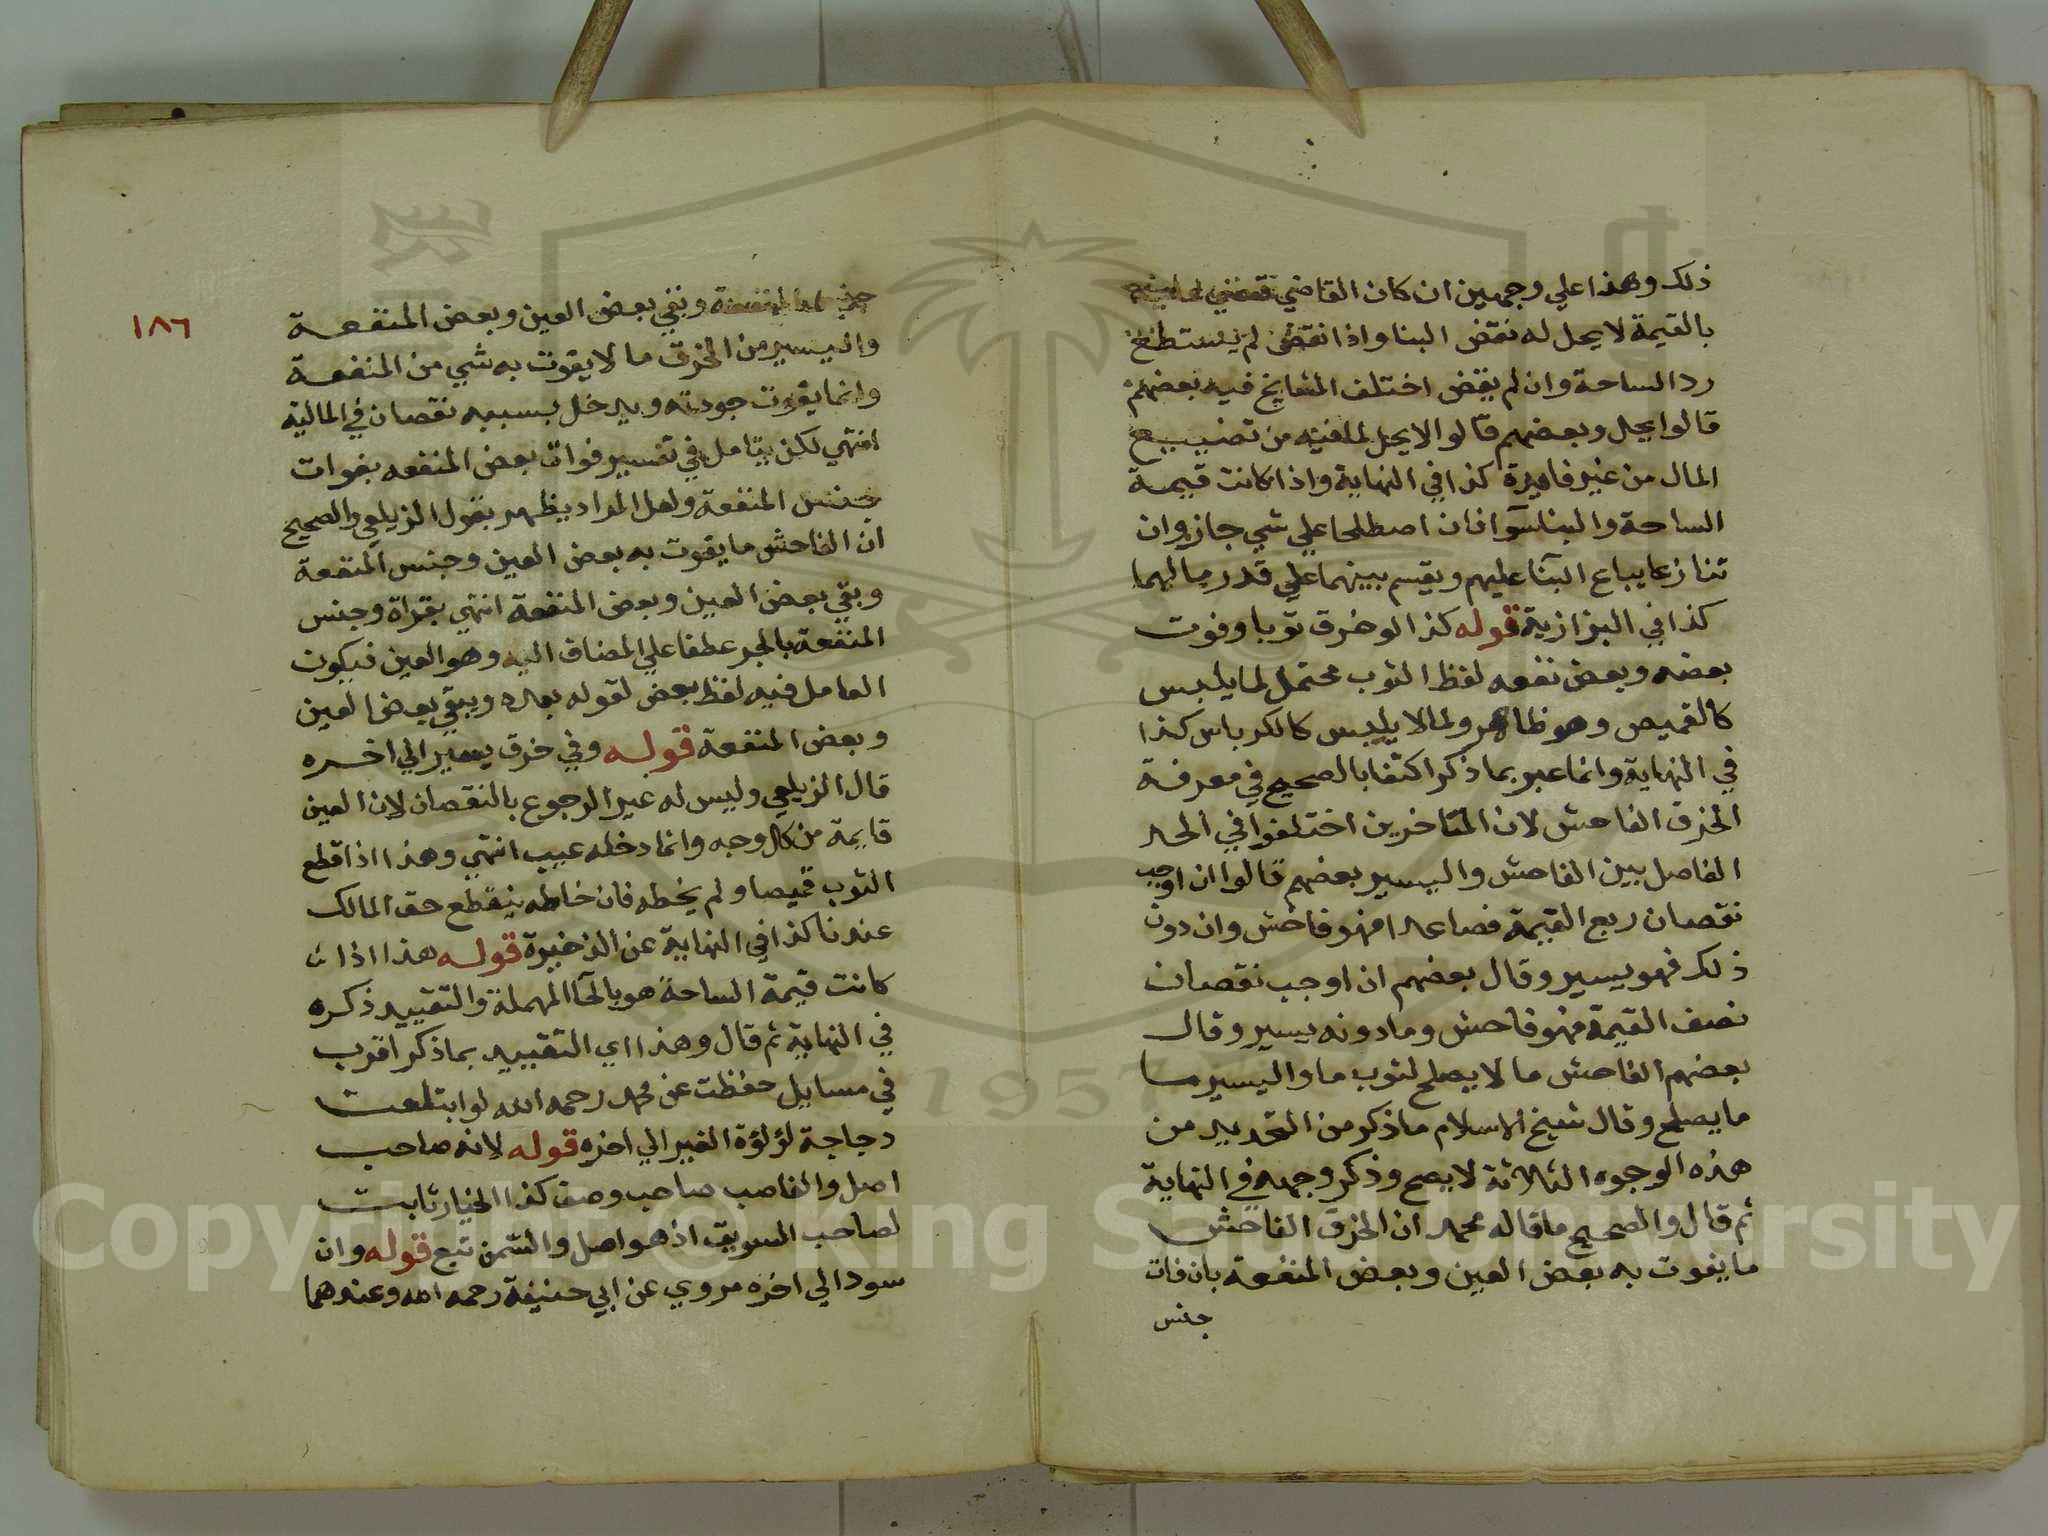 ذلك وهذا علي وجهين ان كان القاضي قضي
بالقيمة لا يحل له نقض البنا واذا نقض لم يستطع
رد الساحة وان لم يقض اختلف المشايخ فيه بعضهم
قالوا يحل وبعضهم قالوا لا يحل لما فيه من تضييع
المال من غير فايدة كذا في النهاية واذا كانت قيمة
الساحة والبنا سوآ فان اصطلحا علي شي جاز وان
تنازعا يباع البنآ عليهم ويقسم بينهما علي قدر مالهما
كذا في البزازية قوله كذا لو خرق ثوبا وفوت
بعضه وبعض نفعه لفظ الثوب محتمل لما يلبس
كالقميص وهو ظاهر ولما لا يلبس كالكرباس كذا
في النهاية وانما عبر بما ذكر اكتفا بالصحيح في معرفة
الخرق الفاحش لان المتاخرين اختلفوا في الحد
الفاصل بين الفاحش واليسير بعضهم قالوا ان اوجب
نقصان ربع القيمة فصاعدا فهو فاحش وان دون
ذلك فهو يسير وقال بعضهم ان اوجب نقصان
نصف القيمة فهو فاحش وما دونه يسير وقال
بعضهم الفاحش ما لا يصلح لثوب ما واليسير ما
ما يصلح وقال شيخ الاسلام ما ذكر من التحديد من
هذه الوجوه الثلاثة لا يصح وذكر وجهه في النهاية
ثم قال والصحيح ما قاله محمد ان الخرق الفاحش
ما يفوت به بعض العين وبعض المنفعة بان فات
جنس
١٨٦
جنس المنفعة وبقي بعض العين وبعض المنفعة
واليسير من الخرق ما لا يفوت به شي من المنفعة
وانما يفوت جودته ويدخل بسببه نقصان في المالية
انتهي لكن يتامل في تفسير فوات بعض المنفعه بفوات
جنس المنفعة ولعل المراد يظهر بقول الزيلعي والصحيح
ان الفاحش ما يفوت به بعض العين وجنس المنفعة
وبقي بعض العين وبعض المنفعة انتهي بقراة وجنس
المنفعة بالجر عطفا علي المضاف اليه وهو العين فيكون
العامل فيه لفظ بعض لقوله بعده ويبقي بعض العين
وبعض المنفعة قوله وفي خرق يسير الي اخره
قال الزيلعي وليس له غير الرجوع بالنقصان لان العين
قايمة من كل وجه وانما دخله عيب انتهي وهذا اذا قطع
الثوب قميصا ولم يخطه فان خاطه ينقطع حق المالك
عندنا كذا في النهاية عن الذخيرة قوله هذا اذا
كانت قيمة الساحة هو بالحآ المهملة والتقييد ذكره
في النهاية ثم قال وهذا اي التقييد بما ذكر اقرب
في مسايل حفظت عن محمد رحمه الله لو ابتلعت
دجاجة لؤلؤة الغير الي اخره قوله لانه صاحب
اصل والغاصب صاحب وصف كذا الخيار ثابت
لصاحب السويق اذ هو اصل والسمن تبع قوله وان
سود الي اخره مروي عن ابي حنيفة رحمه الله وعندهما
Copyright © King Saud University
1957